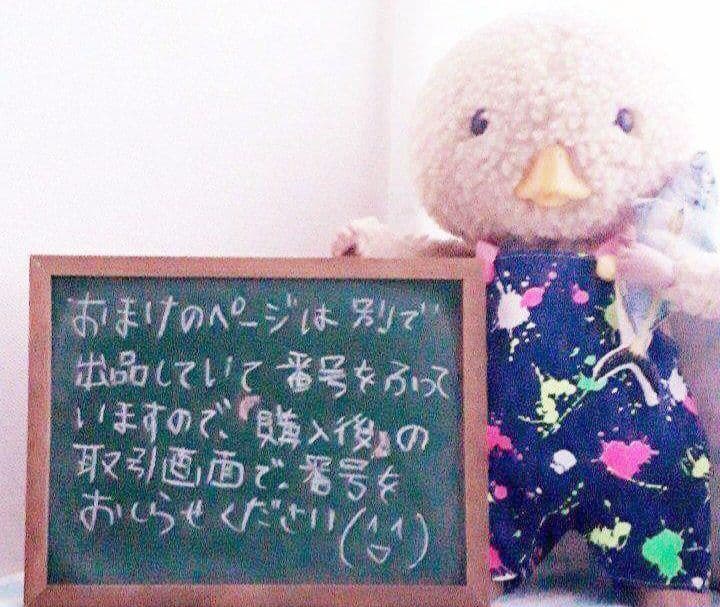 おまけのページは別で
出品していて番号をふって
いますので、『購入後』の
取引画面で、番号を
おしらせください(^▽^)